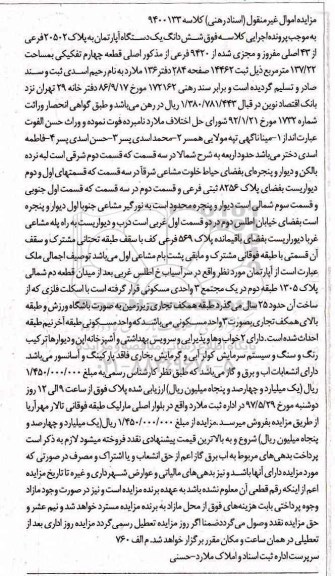 مزایده اموال غیرمنقول (اسناد رهنی) کلاسه ۹۴۰۰۱۳۳
به موجب پرونده اجرایی کلاسه فوق شش دانگ یک دستگاه آپارتمان به پلاک ۲۰۵۰۲ فرعی
از ۴۳ اصلی مفروز و مجزی شده از ۹۴۲۰ فرعی از مذکور اصلی قطعه چهارم تفکیکی بمساحت
۱۳۷/۲۲ مترمربع ذیل ثبت ۱۴۴۶۲ صفحه ۲۸۴ دفتر ۱۳۶ ملارد به نام رحیم اسدی ثبت و سند
صادر و تسلیم گردیده است و برابر سند رهنی ۱۷۲۱۶۲ مورخ ۸۶/۹/۱۷ دفتر خانه ۲۹ تهران نزد
بانک اقتصاد نوین در قبال ۱/۳۸۰/۷۸۱/۴۴۳ ریال در رهن می‌باشد و طبق گواهی انحصار وراثت
شماره ۱۷۳۲ مورخ ۹۲/۱/۲۱ شورای حل اختلاف ملارد نامبرده فوت نموده و وراث حسن الفوت
عبارت‌اند از ۱-میناناگهی تپه مولایی همسر ۲-محمد اسدی پسر ۳-حسن اسدی پسر ۴-فاطمه
اسدی دختر می‌باشد حدود اربعه به شرح شمالا در سه قسمت که قسمت دوم شرقی است لبه نرده
بالکن و دیوار و پنجره‌ای بفضای حیاط خلوت مشاعی شرقا در سه قسمت که قسمتهای اول و دوم
دیواریست بفضای پلاک ۸۲۵۶ ثبتی فرعی و قسمت دوم در سه قسمت که قسمت اول جنوبی
و قسمت سوم شمالی است دیوار و پنجره محدود است به نورگیر مشاعی جنوبا اول دیوار و پنجره
است بفضای خیابان اطلس دوم در دو قسمت اول غربی است درب و دیواریست به راه پله مشاعی
غربا دیواریست بفضای باقیمانده پلاک ۵۶۹ فرعی کف با سقف طبقه تحتانی مشترک و سقف
آن قسمتی با طبقه فوقانی مشترک و مابقی پشت بام مشاعی اول می‌باشد توصیف اجمالی ملک
عبارت است از آپارتمان مورد نظر واقع در سرآسیاب خ اطلس غربی بعد از میدان قطعه دم شمالی
پلاک ۱۳۰۵ طبقه دوم در یک مجتمع ۳ واحدی مسکونی قرار گرفته است با اسکلت فلزی که از
ساخت آن حدود ۲۵ سال می‌گذرد طبقه همکف تجاری زیرزمین به صورت باشگاه ورزش و طبقه
بالای همکف تجاری بصورت ۳ واحد مسکونی می‌باشد که واحد مسکونی طبقه آخر نیم طبقه
احداث شده است. دارای ۲ خواب و هال و پذیرایی و سرویس بهداشتی و آشپزخانه این و دیوارها ترکیب
رنگ و سنگ و سیستم سرمایش کولر آبی و گرمایش بخاری فاقد پارکینگ و آسانسور می‌باشد.
دارای انشعابات آب و برق و گاز می‌باشد که طبق نظر کارشناس رسمی به مبلغ ۱/۴۵۰/۰۰۰/۰۰۰
ریال (یک میلیارد و چهارصد و پنجاه میلیون ریال) ارزیابی شده پلاک فوق از ساعت ۹ الی ۱۲ روز
دوشنبه مورخ ۹۷/۵/۲۹ در اداره ثبت ملارد واقع در بلوار اصلی مارلیک طبقه فوقانی تالار مهرآریا
از طریق مزایده بفروش میرسد. مزایده از مبلغ ۱/۴۵۰/۰۰۰/۰۰۰ ریال (یک میلیارد و چهارصد و
پنجاه میلیون ریال) شروع و به بالاترین قیمت پیشنهادی نقدا فروخته میشود لازم به ذکر است
پرداخت بدهی‌های مربوط به آب برق گاز اعم از حق انشعاب و یا اشتراک و مصرف در صورتی که
مورد مزایده دارای آنها باشد و نیز بدهی‌های مالیاتی و عوارض شهرداری و غیره تا تاریخ مزایده
اعم از اینکه رقم قطعی آن معلوم نشده باشد به عهده برنده مزایده است و نیز در صورت وجود مازاد
وجوه پرداختی بابت هزینه‌های فوق از محل مازاد به برنده مزایده مسترد خواهد شد و نیم عشر و
حق مزایده نقدا وصول می‌گردد ضمنا اگر روز مزایده تعطیل رسمی گردد مزایده روز اداری بعد از
تعطیلی در همان ساعت و مکان مقرر برگزار خواهد شد. م الف ۷۶۰
سرپرست اداره ثبت اسناد و املاک ملارد-حسنی